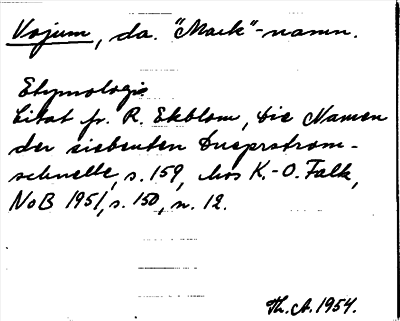 Vojum, da. "Mark"-namn.
Etymologi:
Citat fr. R. Ekblom, Die Namen
der siebenten Dneprstrom-
schnelle, s. 159, hos K.-O. Falk,
NoB 1951, s. 150, n. 12.
Th. A. 1954.